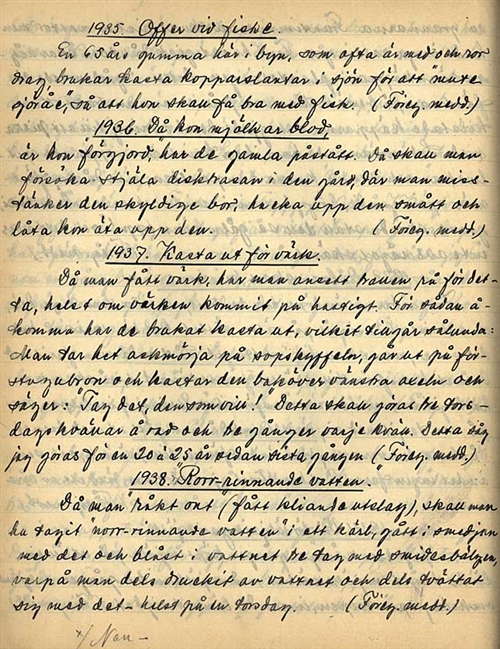 1935. Offer vid fiske.
En 65 års gumma här i byn, som ofta är med och ror
drag brukar kasta kopparslantar i sjön för att "muta
sjörået", så att hon skall få bra med fisk. (Föreg. medd.)
1936. Då kon mjölkar blod,
är kon "förgjord", har de gamla påstått. Då skall man
försöka stjäla disktrasan i den gård, där man miss-
tänker den skyldige bor, hacka upp den smått och
låta kon äta upp den. (Föreg. medd.)
1937. Kasta ut för värk.
Då man fått värk, har man ansett trauen rå för det-
ta, helst om värken kommit på hastigt. För sådan å-
komma har de brukat kasta ut, vilket tillgår sålunda:
Man tar het askmörja på sopskyffeln, går ut på för-
stugubron och kastar den bakåt över vänstra axeln och
säger: "Tag det, den som vill!" Detta skall göras tre tors-
dagskvällar å rad och tre gånger varje kväll. Detta såg
jag göras för en 20 à 25 år sedan sista gången. (Föreg. medd.)
1938. "Rorr-rinnande vatten."
Då man "råkt ont" (fått kliande utslag), skall man
ha tagit "norr-rinnande vatten" i ett kärl, gått i smedjan
med det och blåst i vattnet tre tag med smidesbälgen,
varpå man dels druckit av vattnet och dels tvättat
sig med det - helst på en torsdag. (Föreg. medd.)
x/ Nor -